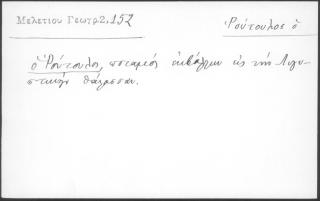 Μελετίου Γεωγρ.2,152
Ῥούτουλος ὁ
ὁ Ῥούτουλος, ποταμός ἐκβάλλων εἰς τήν Λιγυ-
στικήν θάλασσαν.